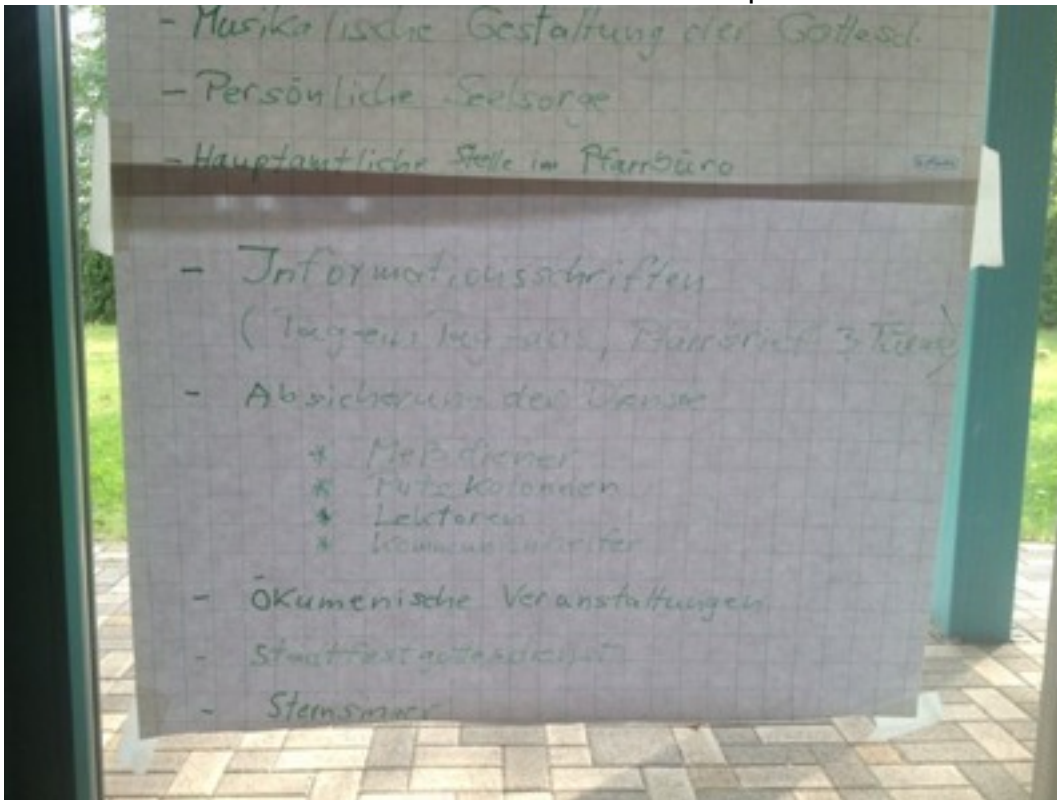 - Musikalische Gestaltung der Gottesd.
- Persönliche Seelsorge
- Hauptamtliche Stelle im Pfarrbüro
- Informationsschriften
(Tag-ein Tag-aus, Pfarrbrief 3
- Absicherung der Dienste
* Meßdiener
* Putzkolonnen
* Lektoren
* Kommunionhelfer
- Ökumenische Veranstaltungen
- Stadtfestgottesdienst
- Sternsinger